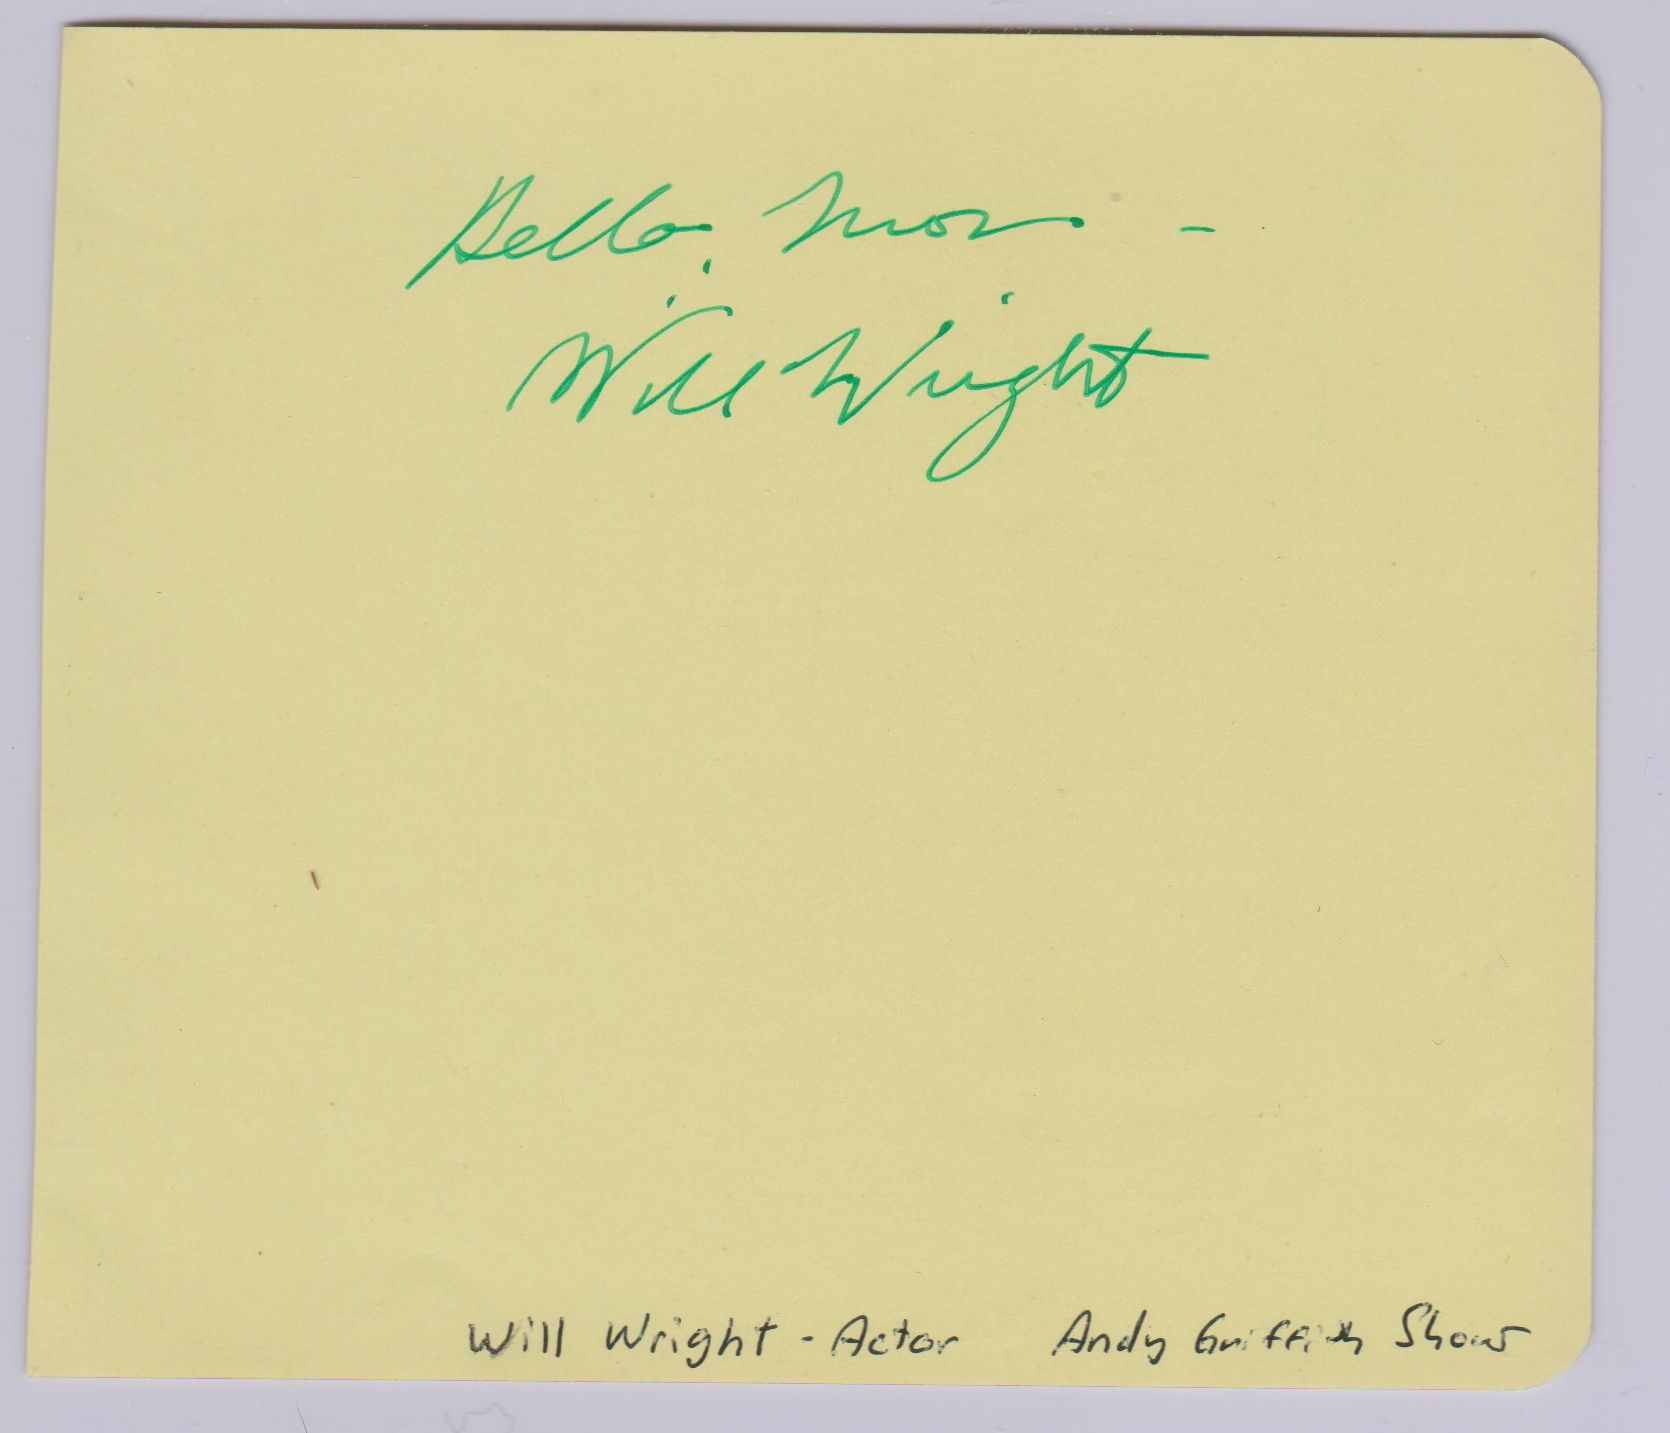 Hello,
Will Wright
Will Wright - Actor Andy Griffith Show